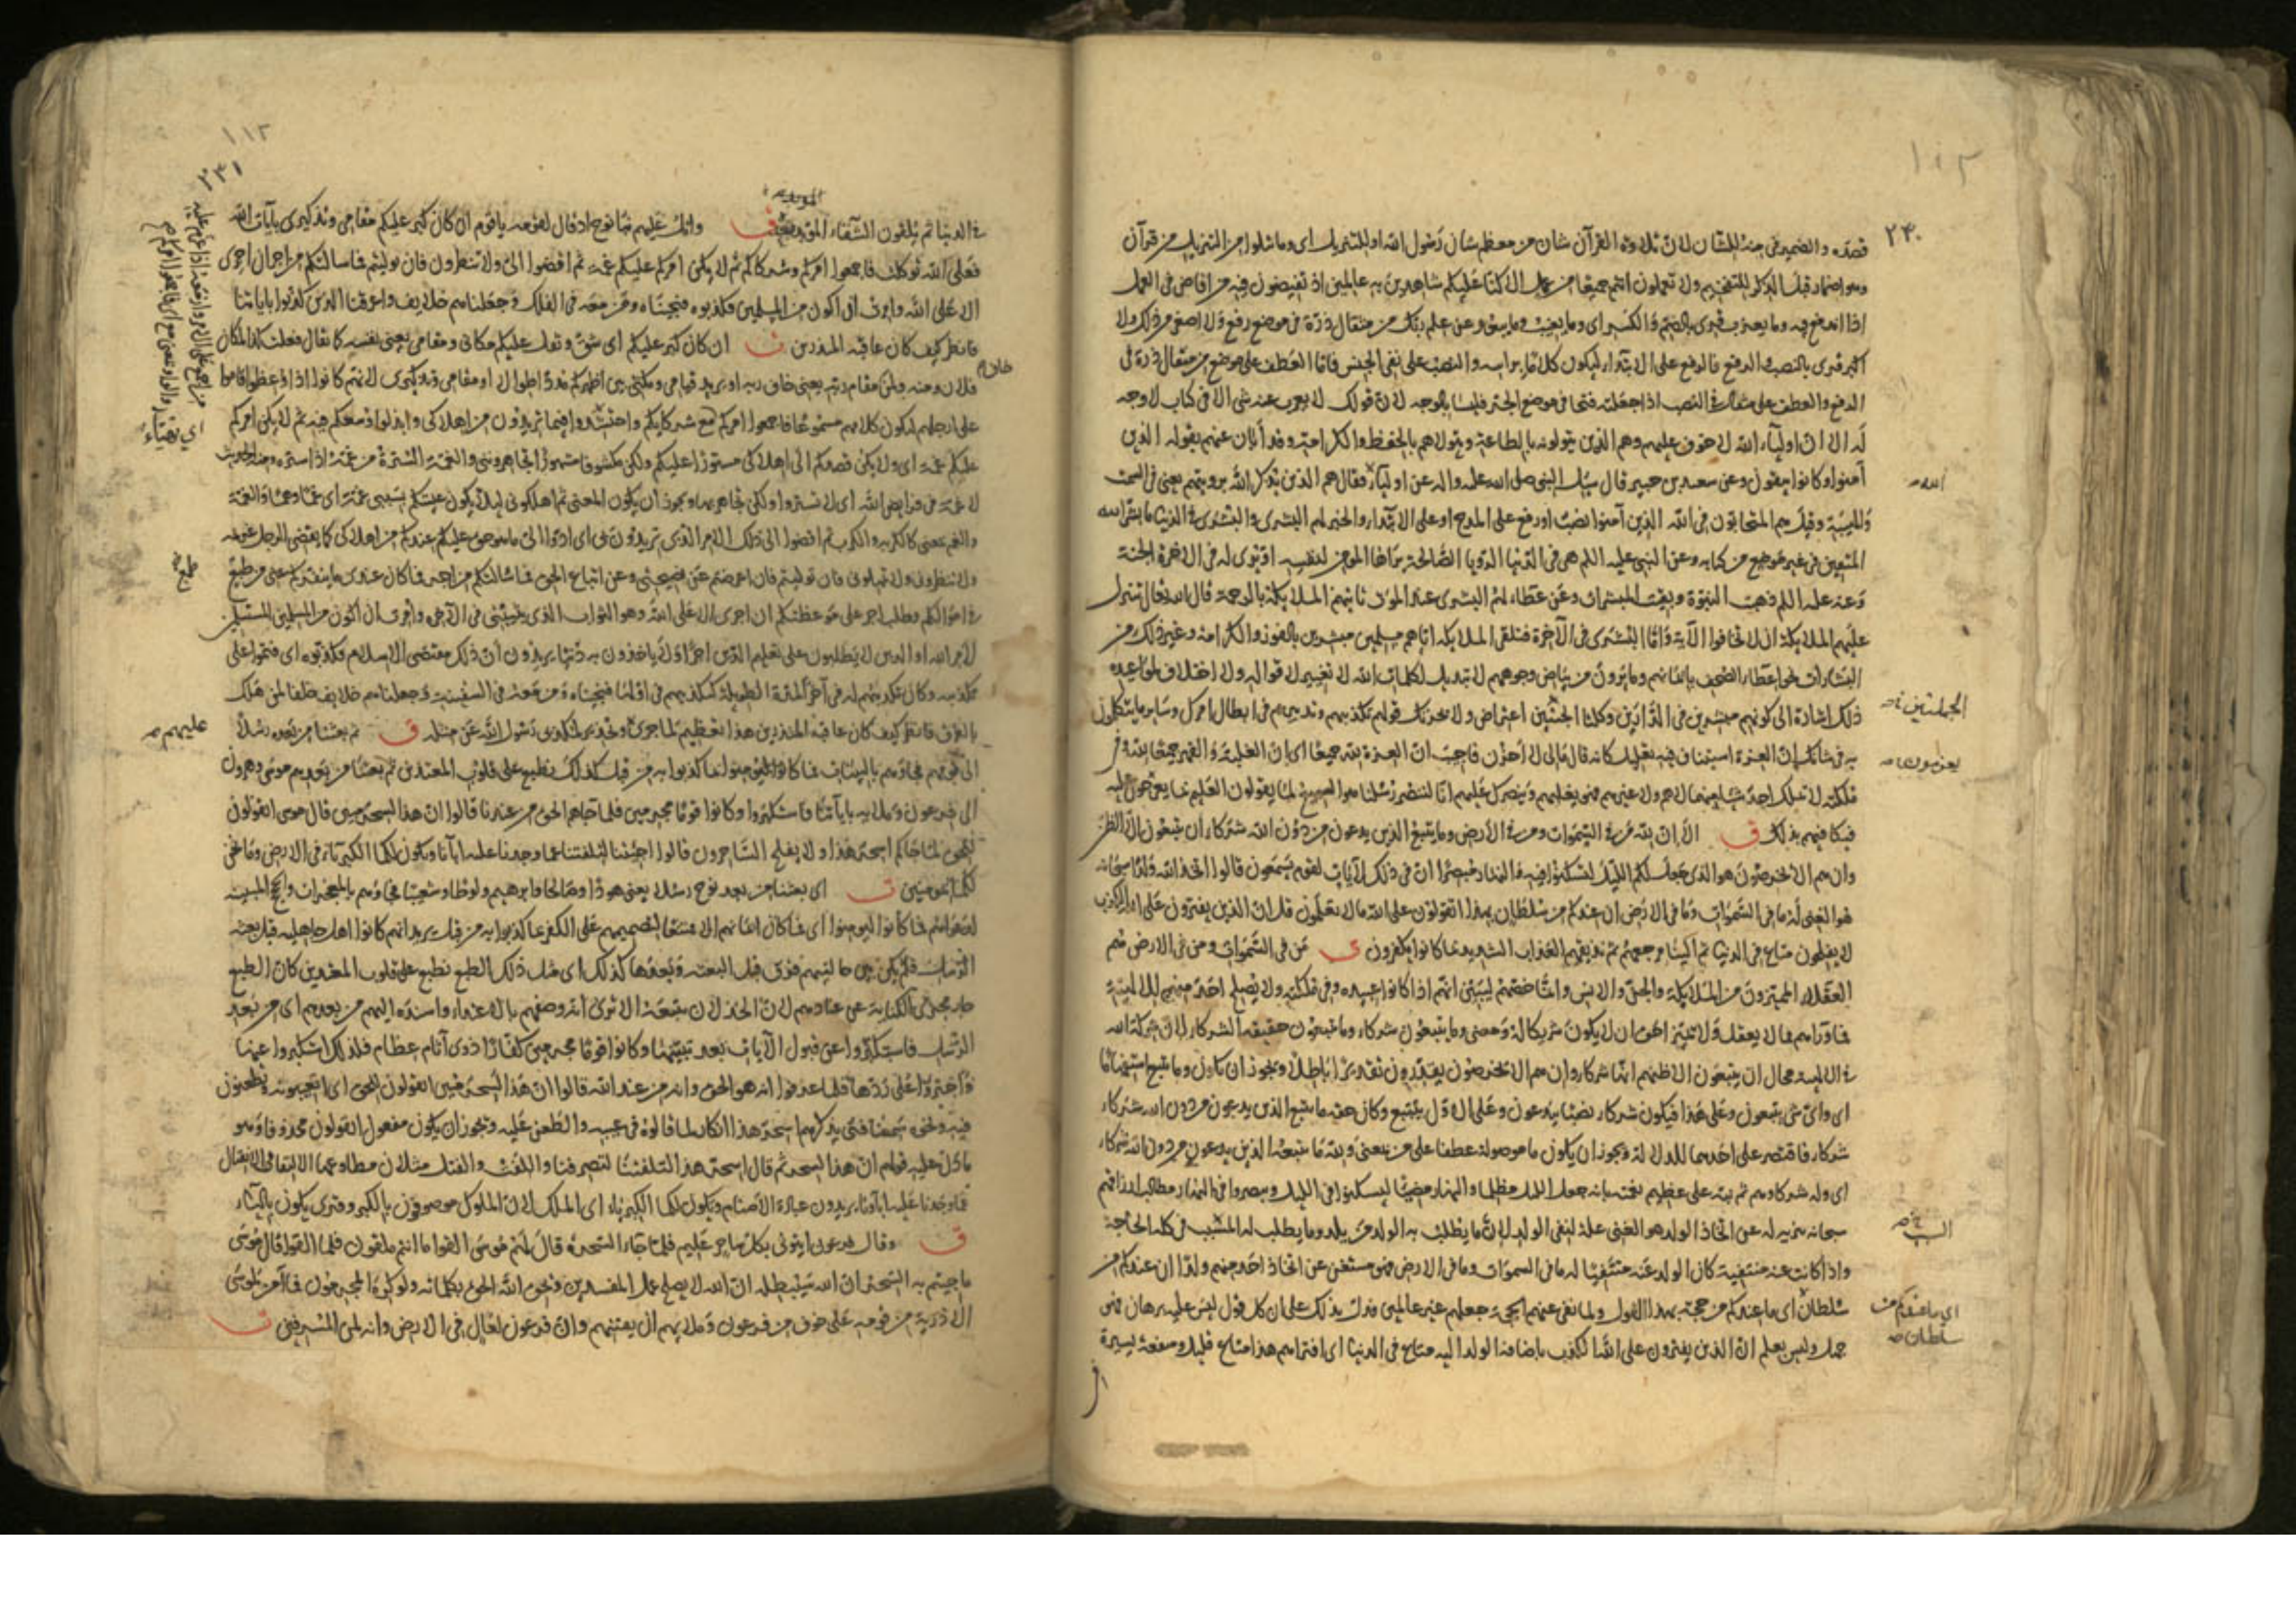 ٢٤٠
قصده والضمير في منه للشان لان تلاوة القرآن شان من معظم شان رسول الله او للتنزيل اي وما تتلوا من التنزيل من قرآن
وهو اضمار قبل الذكر للتفخيم ولا تعملون انتم جميعا من عمل الا كنا عليكم شاهدين به عالمين اذ تفيضون فيه من افاض في العمل
اذا اندفع فيه وما يعزب قرئ بالضم والكسر اي وما يغيب وما يبعد وعن علم ربك من مثقال ذرة في موضع رفع ولا اصغر من ذلك ولا
اكبر قرئ بالنصب والرفع فالرفع على الابتداء ليكون كلاما براسه والنصب على نفي الجنس فاما العطف على موضع من مثقال ذرة في
الرفع والعطف على مثقال في النصب اذا جعلته فتحا في موضع الجر فليسا بالوجه لان قولك لا يعزب عنه شي الا في كتاب لا وجه
له الا ان اولياء الله لا خوف عليهم وهم الذين يتولونه بالطاعة ويتولاهم بالحفظ والكرامة وقد أبان عنهم بقوله الذين
آمنوا وكانوا يتقون وعن سعيد بن جبير قال سئل النبي صلى الله عليه واله عن اولياء فقال هم الذين يذكر الله برؤيتهم يعني في السمت
الله صح
والهيئة وقيل هم المتحابون في الله الذين آمنوا نصب او رفع على المدح او على الابتداء والخبر لهم البشرى والبشرى في الدنيا ما بشر الله
المتقين في غير موضع من كتابه وعن النبي عليه السلم هي في الدنيا الرؤيا الصالحة يراها المؤمن لنفسه او ترى له في الاخرة الجنة
وعنه عليه السلم ذهبت النبوة وبقيت المبشرات وعن عطاء لهم البشرى عند الموت ثاتيهم الملايكة بالرحمة قال الله تعالى تتنزل
عليهم الملايكة ان لا تخافوا الآية واما البشرى في الآخرة فتلقي الملايكة اياهم مسلمين مبشرين بالفوز والكرامة وغير ذلك من
البشارات نحو اعطاء الصحف بايمانهم وما يرون من بياض وجوههم لا تبديل لكلمات الله لا تغيير لاقواله ولا اختلاف لمواعيده
ذلك اشارة الى كونهم مبشرين في الدارين وكلتا الجثتين اعتراض ولا يحزنك قولهم تكذيبهم وتدبيرهم في ابطال امرك وساير ما يتكلمون
الجملتين صح
به في شانك ان العزة استيناف فيه تعليل كانه قال مالي لا احزن فاجيب ان العزة لله جميعا اي ان الغلبة والقهر جميعا لله وفي
ملكته لا يملك احد شيا منهما لا هم ولا غيرهم فهو يغلبهم وينصرك عليهم انا لننصر رسلنا هو السميع لما يقولون العليم بما يعزمون عليه
يعزمون صح
فيكافيهم بذلك ق الا ان لله من في السموات ومن في الارض وما يتبع الذين يدعون من دون الله شركاء ان يتبعون الا الظن
وان هم الا يخرصون هو الذي جعل لكم الليل لتسكنوا فيه والنهار مبصرا ان في ذلك لآيات لقوم يسمعون قالوا اتخذ الله ولدا سبحانه
هو الغني له ما في السموات وما في الارض ان عندكم من سلطان بهذا اتقولون على الله ما لا تعلمون قل ان الذين يفترون على الله الكذب
لا يفلحون متاع في الدنيا ثم الينا مرجعهم ثم نذيقهم العذاب الشديد بما كانوا يكفرون ى من في السموات ومن في الارض هم
العقلاء المميزون من الملايكة والجن والانس وانما خصهم ليبين انهم اذا كانوا عبيده وفي ملكته ولا يصلح احد منهم للالهية
فما وراءهم مما لا يعقل ولا يميز احق ان لا يكون شريكا له ومعنى وما يتبعون شركاء وما يتبعون حقيقة الشركاء لان شركة الله
في الالهية محال ان يتبعون الا ظنهم انها شركاء وان هم الا يخرصون يقدرون تقديرا باطلا ويجوز ان يكون وما يتبع استفهاما
اي واي شي يتبعون وعلى هذا فيكون شركاء نصبا بيدعون وعلى الاول بيتبع وكان حقه ما يتبع الذين يدعون من دون الله شركاء
شركاء فاقتصر على احدهما للدلالة ويجوز ان يكون ما موصولة عطفا على من بمعنى ولله ما يتبعه الذين يدعون من دون الله شركاء
اي وله شركاوهم ثم نبه على عظيم نعمته بانه جعل الليل مظلما والنهار مضيئا ليسكنوا في الليل ويبصروا في النهار مطالب ارزاقهم
سبحانه تنزيه له عن اتخاذ الولد هو الغني علة لنفي الولد لان ما يطلب به الولد من يلد وما يطلب له المسبب في كله الحاجة
السبب صح
واذا كانت عنه منتفية كان الولد عنه منتفيا له ما في السموات وما في الارض فهو مستغن عن اتخاذ احد منهم ولدا ان عندكم من
سلطان اي ما عندكم من حجة بهذا القول ولما نفى عنهم الحجة جعلهم غير عالمين فدل بذلك على ان كل قول ليس عليه برهان فهو
اي ما عندكم من سلطان صح
جهل وليس بعلم ان الذين يفترون على الله الكذب باضافة الولد اليه متاع في الدنيا اي افتراءهم هذا متاع قليل ومنفعة يسيرة
١١٢
٢٤١
في الدنيا ثم يلقون الشقاء المؤبد بعده ق واتل عليهم نبا نوح اذ قال لقومه يا قوم ان كان كبر عليكم مقامي وتذكيري بآيات الله
فعلى الله توكلت فاجمعوا امركم وشركاءكم ثم لا يكن امركم عليكم غمة ثم اقضوا الي ولا تنظرون فان توليتم فما سالتكم من اجر ان اجري
الا على الله وامرت ان اكون من المسلمين فكذبوه فنجيناه ومن معه في الفلك وجعلناهم خلايف واغرقنا الذين كذبوا باياتنا
فانظر كيف كان عاقبة المنذرين ان كان كبر عليكم اي شق وثقل عليكم مكاني ومقامي يعني نفسه كما يقال فعلت كذا لمكان
فلان ومنه ولمن خاف مقام ربه يعني خاف ربه او يريد قيامي ومكثي بين اظهركم مددا طوالا او مقامي وتذكيري لانهم كانوا اذا وعظوا قاموا
على ارجلهم ليكون كلامهم مسموعا فاجمعوا امركم مع شركايكم واحتشدوا فيما تريدون من اهلاكي وابذلوا وسعكم فيه ثم لا يكن امركم
عليكم غمة اي ولا يكن قصدكم الى اهلاكي مستورا عليكم ولكن مكشوفا مشهورا تجاهرونني والغمة السترة من غمه اذا ستره ومنه الحديث
لا غمة في فرايض الله اي لا تستر ولكن تجاهر بها ويجوز ان يكون المعنى ثم اهلكوني ليلا يكون عيشكم بسببي غمة اي غما وهما والغمة
والغم بمعنى كالكربة والكرب ثم اقضوا الي ذلك الامر الذي تريدون بي اي ادوا الي ما هو حق عليكم عندكم من اهلاكي كما يقضي الرجل غريمه
ولا تنظرون ولا تمهلوني فان توليتم فان اعرضتم عن نصيحتي وعن اتباع الحق فما سالتكم من اجر فما كان عندي ما ينفركم عني من طمع
في اموالكم وطلب اجر على موعظتكم ان اجري الا على الله وهو الثواب الذي يثيبني في الآخرة وامرت ان اكون من المسلمين المستسلمين
لامر الله او الذين لا يطلبون على تعليم الدين اجرا ولا ياخذون به دنيا يريدون ان ذلك مقتضى الاسلام فكذبوه اي فتموا على
تكذيبه وكان تكذيبهم له في آخر المدة الطويلة كتكذيبهم في اولها فنجيناه ومن معه في السفينة وجعلناهم خلايف خلفا لمن هلك
بالغرق فانظر كيف كان عاقبة المنذرين هذا تعظيم لما جرى وتحذير لمكذبي رسول الله عن مثله ق ثم بعثنا من بعده رسلا
عليهم صح
الى قومهم فجاوهم بالبينات فما كانوا ليومنوا بما كذبوا به من قبل كذلك نطبع على قلوب المعتدين ثم بعثنا من بعدهم موسى وهرون
الى فرعون وملايه بآياتنا فاستكبروا وكانوا قوما مجرمين فلما جاءهم الحق من عندنا قالوا ان هذا لسحر مبين قال موسى اتقولون
للحق لما جاءكم اسحر هذا ولا يفلح الساحرون قالوا اجئتنا لتلفتنا عما وجدنا عليه اباءنا وتكون لكما الكبرياء في الارض وما نحن
لكما بمومنين اي بعثنا من بعد نوح رسلا يعني هودا وصالحا وابرهيم ولوطا وشعيبا فجاؤهم بالمعجزات والحجج المبينة
لدعواهم فما كانوا ليومنوا اي فما كان ايمانهم الا ممتنعا لتصميمهم على الكفر بما كذبوا به من قبل يريد انهم كانوا اهل جاهلية قبل بعثة
الرسل فلم يكن بين حالتيهم فرق قبل البعثة وبعدها كذلك اي مثل ذلك الطبع نطبع على قلوب المعتدين كان الطبع
جار مجرى الكناية عن عنادهم لان الخذلان يتبعه الا ترى انه وصفهم بالاعتداء واسنده اليهم من بعدهم اي من بعد
الرسل فاستكبروا عن قبول الآيات بعد تبينها وكانوا قوما مجرمين كفارا ذوي آثام عظام فلذلك استكبروا عنها
واجترؤا على ردها فلما عرفوا انه هو الحق وانه من عند الله قالوا ان هذا لسحر مبين اتقولون للحق اي اتعيبونه وتطعنون
فيه ونحوه سمعنا فتى يذكرهم اسحر هذا انكار لما قالوه في عيبه والطعن عليه ويجوز ان يكون مفعول اتقولون محذوفا وهو
ما دل عليه قولهم ان هذا لسحر ثم قال اسحر هذا لتلفتنا لتصرفنا واللفت والفتل مثلان مطاوعهما الالتفات والانفتال
عما وجدنا عليه اباءنا يريدون عبادة الاصنام وتكون لكما الكبرياء اي الملك لان الملوك موصوفون بالكبر وقرئ يكون بالياء
ق وقال فرعون ايتوني بكل ساحر عليم فلما جاء السحرة قال لهم موسى القوا ما انتم ملقون فلما القوا قال موسى
ما جئتم به السحر ان الله سيبطله ان الله لا يصلح عمل المفسدين ويحق الله الحق بكلماته ولو كره المجرمون فما آمن لموسى
الا ذرية من قومه على خوف من فرعون وملايهم ان يفتنهم وان فرعون لعال في الارض وانه لمن المسرفين